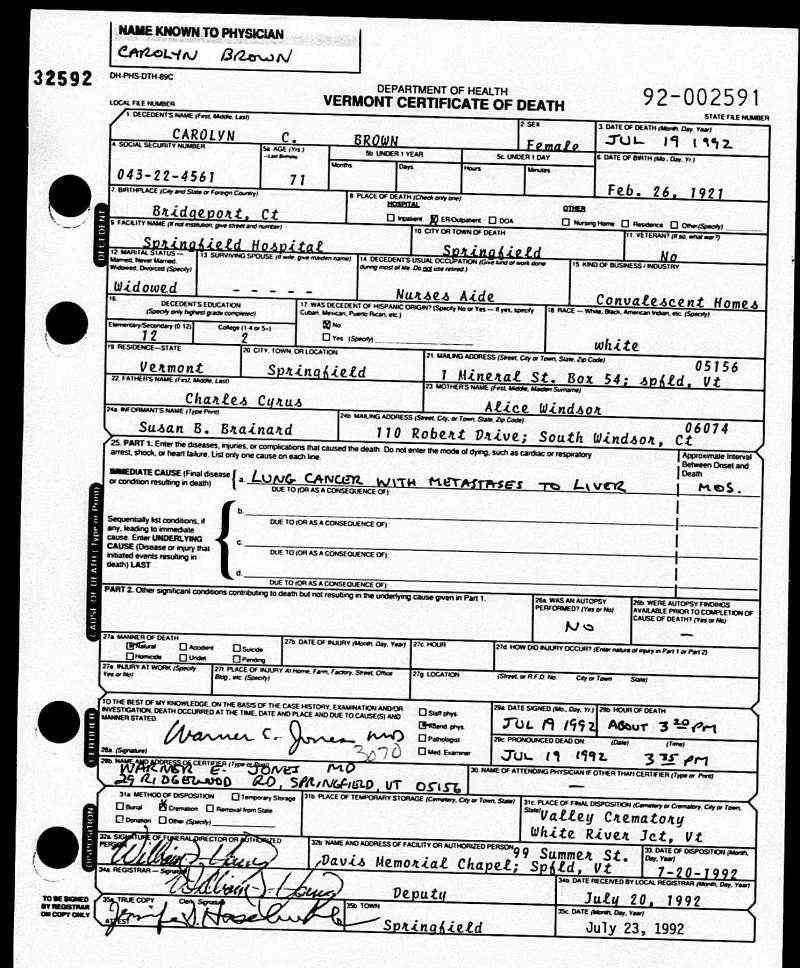 NAME KNOWN TO PHYSICIAN
CAROLYN BROWN
32592
DH-PHS-DTH-89C
DEPARTMENT OF HEALTH
VERMONT CERTIFICATE OF DEATH
92-002591
LOCAL FILE NUMBER
STATE FILE NUMBER
1. DECEDENT'S NAME (First, Middle, Last)
CAROLYN C. BROWN
2. SEX
Female
3. DATE OF DEATH (Month, Day, Year)
JUL 19 1992
4. SOCIAL SECURITY NUMBER
043-22-4561
5a. AGE (Yrs.)
—Last Birthday
71
5b. UNDER 1 YEAR
Months Days
5c. UNDER 1 DAY
Hours Minutes
6. DATE OF BIRTH (Mo., Day, Yr.)
Feb. 26, 1921
7. BIRTHPLACE (City and State or Foreign Country)
Bridgeport, Ct
8. PLACE OF DEATH (Check only one)
HOSPITAL
Inpatient ER/Outpatient DOA
OTHER
Nursing Home Residence Other (Specify)
9. FACILITY NAME (If not institution, give street and number)
Springfield Hospital
10. CITY OR TOWN OF DEATH
Springfield
11. VETERAN? (If so, what war?)
No
12. MARITAL STATUS—
Married, Never Married,
Widowed, Divorced (Specify)
Widowed
13. SURVIVING SPOUSE (If wife, give maiden name)
- - - - -
14. DECEDENT'S USUAL OCCUPATION (Give kind of work done
during most of life. Do not use retired.)
Nurses Aide
15. KIND OF BUSINESS / INDUSTRY
Convalescent Homes
16. DECEDENT'S EDUCATION
(Specify only highest grade completed)
Elementary/Secondary (0-12) College (1-4 or 5+)
12 2
17. WAS DECEDENT OF HISPANIC ORIGIN? (Specify No or Yes — If yes, specify
Cuban, Mexican, Puerto Rican, etc.)
No
Yes (Specify)
18. RACE — White, Black, American Indian, etc. (Specify)
white
19. RESIDENCE—STATE
Vermont
20. CITY, TOWN, OR LOCATION
Springfield
21. MAILING ADDRESS (Street, City or Town, State, Zip Code)
05156
1 Mineral St. Box 54; spfld, Vt
22. FATHER'S NAME (First, Middle, Last)
Charles Cyrus
23. MOTHER'S NAME (First, Middle, Maiden Surname)
Alice Windsor
24a. INFORMANT'S NAME (Type/Print)
Susan B. Brainard
24b. MAILING ADDRESS (Street, City, or Town, State, Zip Code)
06074
110 Robert Drive; South Windsor, Ct
25. PART 1. Enter the diseases, injuries, or complications that caused the death. Do not enter the mode of dying, such as cardiac or respiratory
arrest, shock, or heart failure. List only one cause on each line.
Approximate Interval
Between Onset and
Death
IMMEDIATE CAUSE (Final disease
or condition resulting in death)
a. LUNG CANCER WITH METASTASES TO LIVER
MOS.
DUE TO (OR AS A CONSEQUENCE OF):
b.
DUE TO (OR AS A CONSEQUENCE OF):
Sequentially list conditions, if
any, leading to immediate
cause. Enter UNDERLYING
CAUSE (Disease or injury that
initiated events resulting in
death) LAST
c.
DUE TO (OR AS A CONSEQUENCE OF):
d.
DUE TO (OR AS A CONSEQUENCE OF):
PART 2. Other significant conditions contributing to death but not resulting in the underlying cause given in Part 1.
26a. WAS AN AUTOPSY
PERFORMED? (Yes or No)
NO
26b. WERE AUTOPSY FINDINGS
AVAILABLE PRIOR TO COMPLETION OF
CAUSE OF DEATH? (Yes or No)
—
27a. MANNER OF DEATH
Natural Accident Suicide
Homicide Undet. Pending
27b. DATE OF INJURY (Month, Day, Year)
27c. HOUR
27d. HOW DID INJURY OCCUR? (Enter nature of injury in Part 1 or Part 2)
27e. INJURY AT WORK (Specify
Yes or No)
27f. PLACE OF INJURY At Home, Farm, Factory, Street, Office
Bldg., etc. (Specify)
27g. LOCATION (Street, or R.F.D. No. City or Town State)
TO THE BEST OF MY KNOWLEDGE, ON THE BASIS OF THE CASE HISTORY, EXAMINATION AND/OR
INVESTIGATION, DEATH OCCURRED AT THE TIME, DATE AND PLACE AND DUE TO CAUSE(S) AND
MANNER STATED.
Warner E. Jones MD
3070
28a. (Signature)
Staff phys.
Attend. phys.
Pathologist
Med. Examiner
29a. DATE SIGNED (Mo., Day, Yr.)
JUL 19 1992
29b. HOUR OF DEATH
ABOUT 3 20 PM
29c. PRONOUNCED DEAD ON: (Date) (Time)
JUL 19 1992 3 35 PM
28b. NAME AND ADDRESS OF CERTIFIER (Type or Print)
WARNER E. JONES MD
29 RIDGEWOOD RD, SPRINGFIELD, VT 05156
30. NAME OF ATTENDING PHYSICIAN IF OTHER THAN CERTIFIER (Type or Print)
—
31a. METHOD OF DISPOSITION
Temporary Storage
Burial Cremation Removal from State
Donation Other (Specify)
31b. PLACE OF TEMPORARY STORAGE (Cemetery, City or Town, State)
31c. PLACE OF FINAL DISPOSITION (Cemetery or Crematory, City or Town,
State)
Valley Crematory
White River Jct, Vt
32a. SIGNATURE OF FUNERAL DIRECTOR OR AUTHORIZED
PERSON
32b. NAME AND ADDRESS OF FACILITY OR AUTHORIZED PERSON
99 Summer St.
Davis Memorial Chapel; Spfld, Vt
33. DATE OF DISPOSITION (Month,
Day, Year)
7-20-1992
34a. REGISTRAR — Signature
Deputy
34b. DATE RECEIVED BY LOCAL REGISTRAR (Month, Day, Year)
July 20, 1992
TO BE SIGNED
BY REGISTRAR
ON COPY ONLY
35a. TRUE COPY Clerk Signature
ATTEST
35b. TOWN
Springfield
35c. DATE (Month, Day, Year)
July 23, 1992
DECEDENT
CAUSE OF DEATH (Type or Print)
CERTIFIER
DISPOSITION